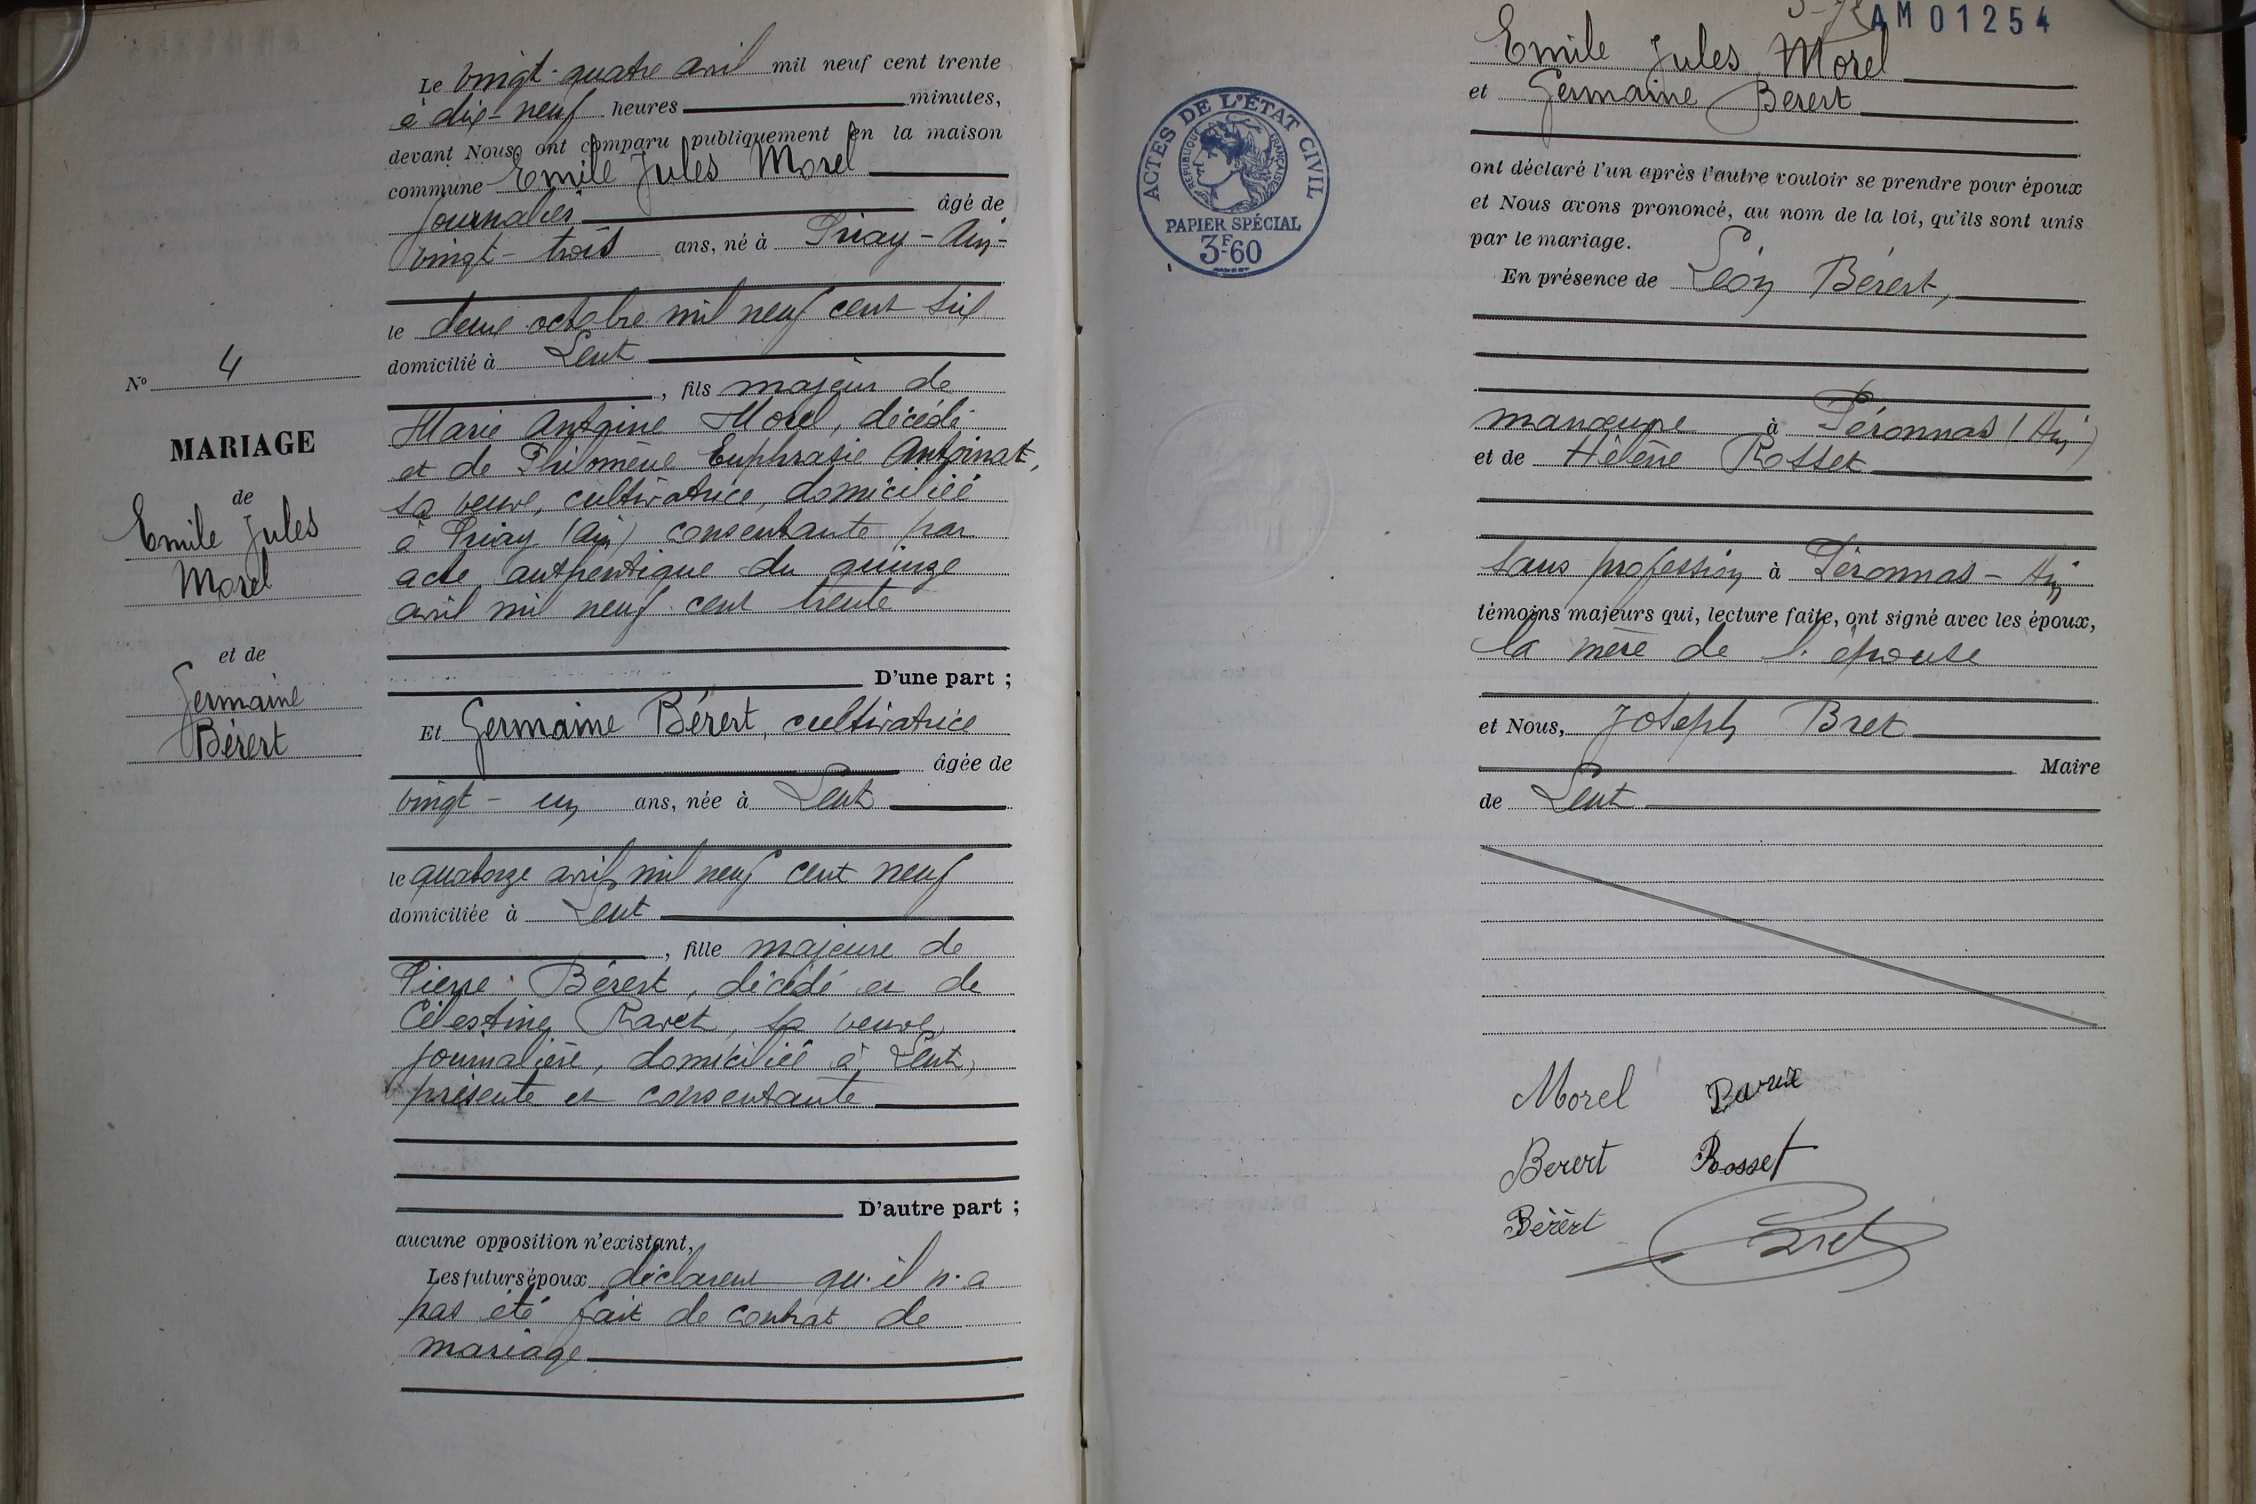 Le vingt-quatre avril mil neuf cent trente
à dix-neuf heures minutes,
devant Nous, ont comparu publiquement en la maison
commune Emile Jules Morel
journalier âgé de
vingt-trois ans, né à Priay - Ain -
le deux octobre mil neuf cent six
domicilié à Lent
, fils majeur de
Marie Antoine Morel, décédé
et de Philomène Euphrasie Antoinat,
sa veuve, cultivatrice, domiciliée
à Priay (Ain) consentante par
acte authentique du quinze
avril mil neuf cent trente
D'une part ;
Et Germaine Bérert, cultivatrice
âgée de
vingt-un ans, née à Lent
le quatorze avril mil neuf cent neuf
domiciliée à Lent
, fille majeure de
Pierre Bérert, décédé et de
Célestine Ravet, sa veuve,
journalière, domiciliée à Lent,
présente et consentante
D'autre part ;
aucune opposition n'existant,
Les futurs époux déclarent qu'il n'a
pas été fait de contrat de
mariage
No 4
MARIAGE
de
Emile Jules
Morel
et de
Germaine
Bérert
AM01254
Emile Jules Morel
et Germaine Berert
ont déclaré l'un après l'autre vouloir se prendre pour époux
et Nous avons prononcé, au nom de la loi, qu'ils sont unis
par le mariage.
En présence de Léon Bérert,
manœuvre à Péronnas (Ain)
et de Hélène Rosset
sans profession à Péronnas - Ain
témoins majeurs qui, lecture faite, ont signé avec les époux,
la mère de l'épouse
et Nous, Joseph Bret
Maire
de Lent
ACTES DE L'ÉTAT CIVIL
RÉPUBLIQUE FRANÇAISE
PAPIER SPÉCIAL
3F60
Morel
Berert Rosset
Bérért Bret